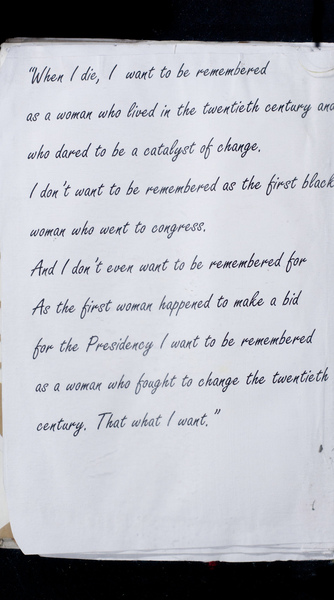 "When I die, I want to be remembered
as a woman who lived in the twentieth century and
who dared to be a catalyst of change.
I don't want to be remembered as the first black
woman who went to congress.
And I don't even want to be remembered for
As the first woman happened to make a bid
for the Presidency I want to be remembered
as a woman who fought to change the twentieth
century. That what I want."